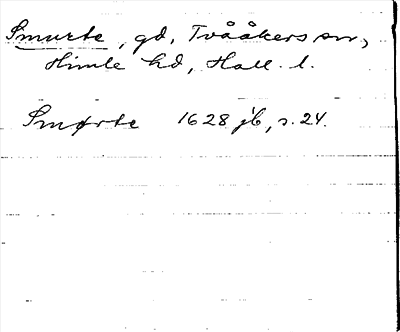 Smurte, gd, Tvååkers sn,
Himle hd, Hall. l.
Smørte 1628 jb, s. 24.